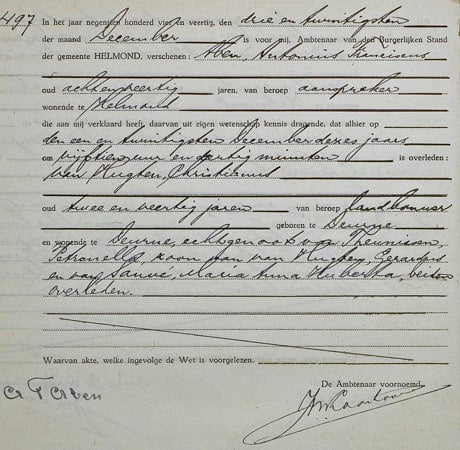 497
In het jaar negentien honderd vier en veertig, den drie en twintigsten
der maand December is voor mij, Ambtenaar van den Burgerlijken Stand
der gemeente HELMOND, verschenen: Aben, Antonius Franciscus
oud achtenveertig jaren, van beroep aanspreker
wonende te Helmond
die aan mij verklaard heeft, daarvan uit eigen wetenschap kennis dragende, dat alhier op
den een en twintigsten December dezes jaars
om vijftien uur en dertig minuten is overleden:
van Hugten, Christianus
oud twee en veertig jaren van beroep landbouwer
geboren te Deurne
en wonende te Deurne, echtgenoot van Theunissen,
Petronella, zoon van van Hugten, Gerardus
en van Sauvé, Maria Anna Huberta, beiden
overleden.
Waarvan akte, welke ingevolge de Wet is voorgelezen.
De Ambtenaar voornoemd,
A F Aben